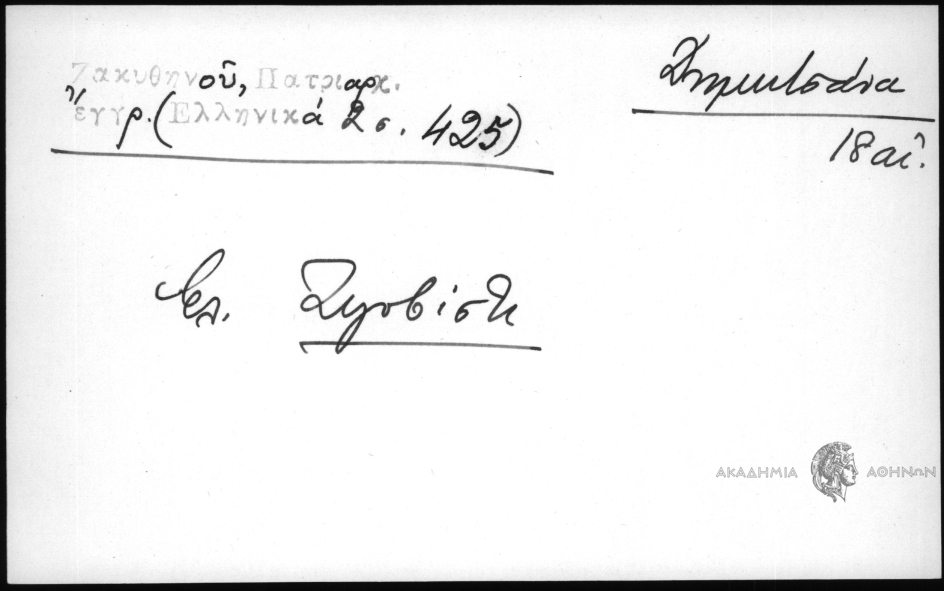 Ζακυθηνοῦ, Πατριαρχ.
ἔγγρ. (Ἑλληνικά 2 σ. 425)
Δημητσάνα
18 αἰ.
βλ.
ΑΚΑΔΗΜΙΑ ΑΘΗΝΩΝ